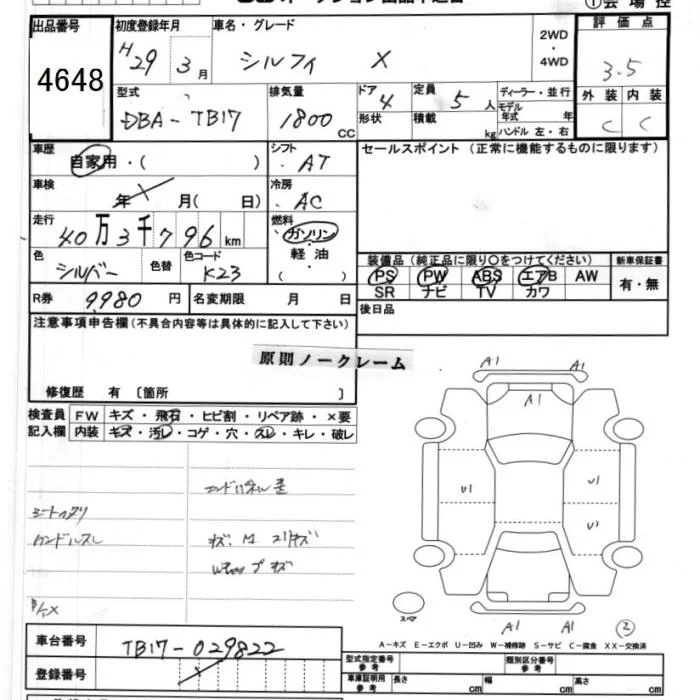 ①会場控
出品番号
4648
初度登録年月
H29 3月
車名・グレード
シルフィ X
2WD
・
4WD
評価点
3.5
外装 内装
C C
型式
DBA-TB17
排気量
1800 CC
ドア 4
形状
定員 5人
積載 kg
ディーラー・並行
モデル年式 年
ハンドル 左・右
車歴
自家用・( )
シフト
AT
セールスポイント (正常に機能するものに限ります)
車検
年 月( 日)
冷房
AC
走行
40万3千796km
燃料
ガソリン
・
軽油
・
( )
色
シルバー
色替
色コード
K23
装備品 (純正品に限り○をつけてください)
PS PW ABS エアB AW
SR ナビ TV カワ
新車保証書
有・無
R券 9980 円
名変期限 月 日
後日品
注意事項申告欄(不具合内容等は具体的に記入して下さい)
原則ノークレーム
修復歴 有 〔箇所 〕
検査員
記入欄
FW キズ・飛石・ヒビ割・リペア跡・×要
内装 キズ・汚レ・コゲ・穴・スレ・キレ・破レ
シートヘタリ
ハンドルスレ
エンドパネル歪
A1 A1
A1
U1 U1
U1
A1 A1
スペア
A-キズ E-エクボ U-凹み W-補修跡 S-サビ C-腐食 XX-交換済
車台番号
TB17-029822
登録番号
型式指定番号
参考
類別区分番号
参考
車庫証明用
参考
長さ cm 幅 cm 高さ cm